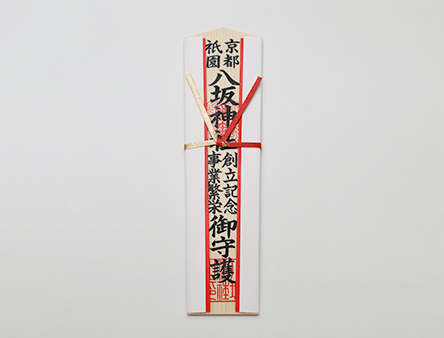 京都
祇園
八坂神社
創立記念
事業繁栄
御守護